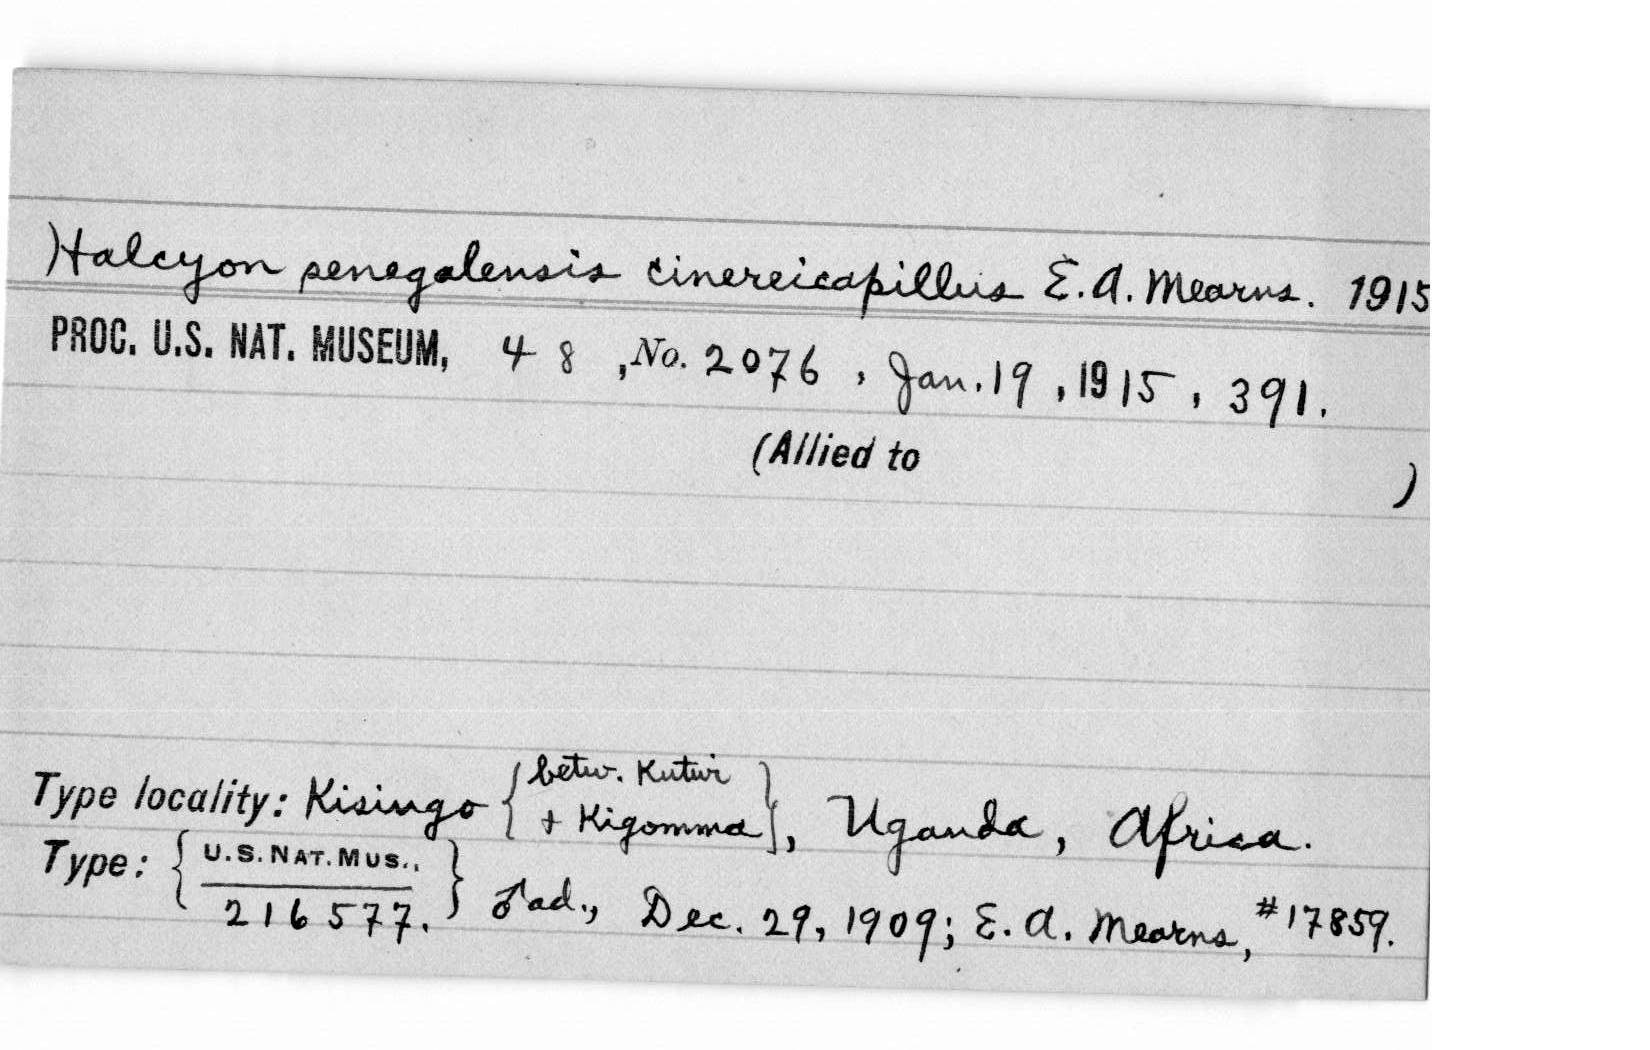 Halcyon senegalensis cinereicapillus E. A. Mearns. 1915
PROC. U.S. NAT. MUSEUM, 48, No. 2076, Jan. 19, 1915, 391.
(Allied to )
Type locality: Kisingo { betw. Kutwi
+ Kigomma }, Uganda, Africa.
Type: { U.S. NAT. MUS.,
216577. } ♂ ad., Dec. 29, 1909; E. A. Mearns, #17859.